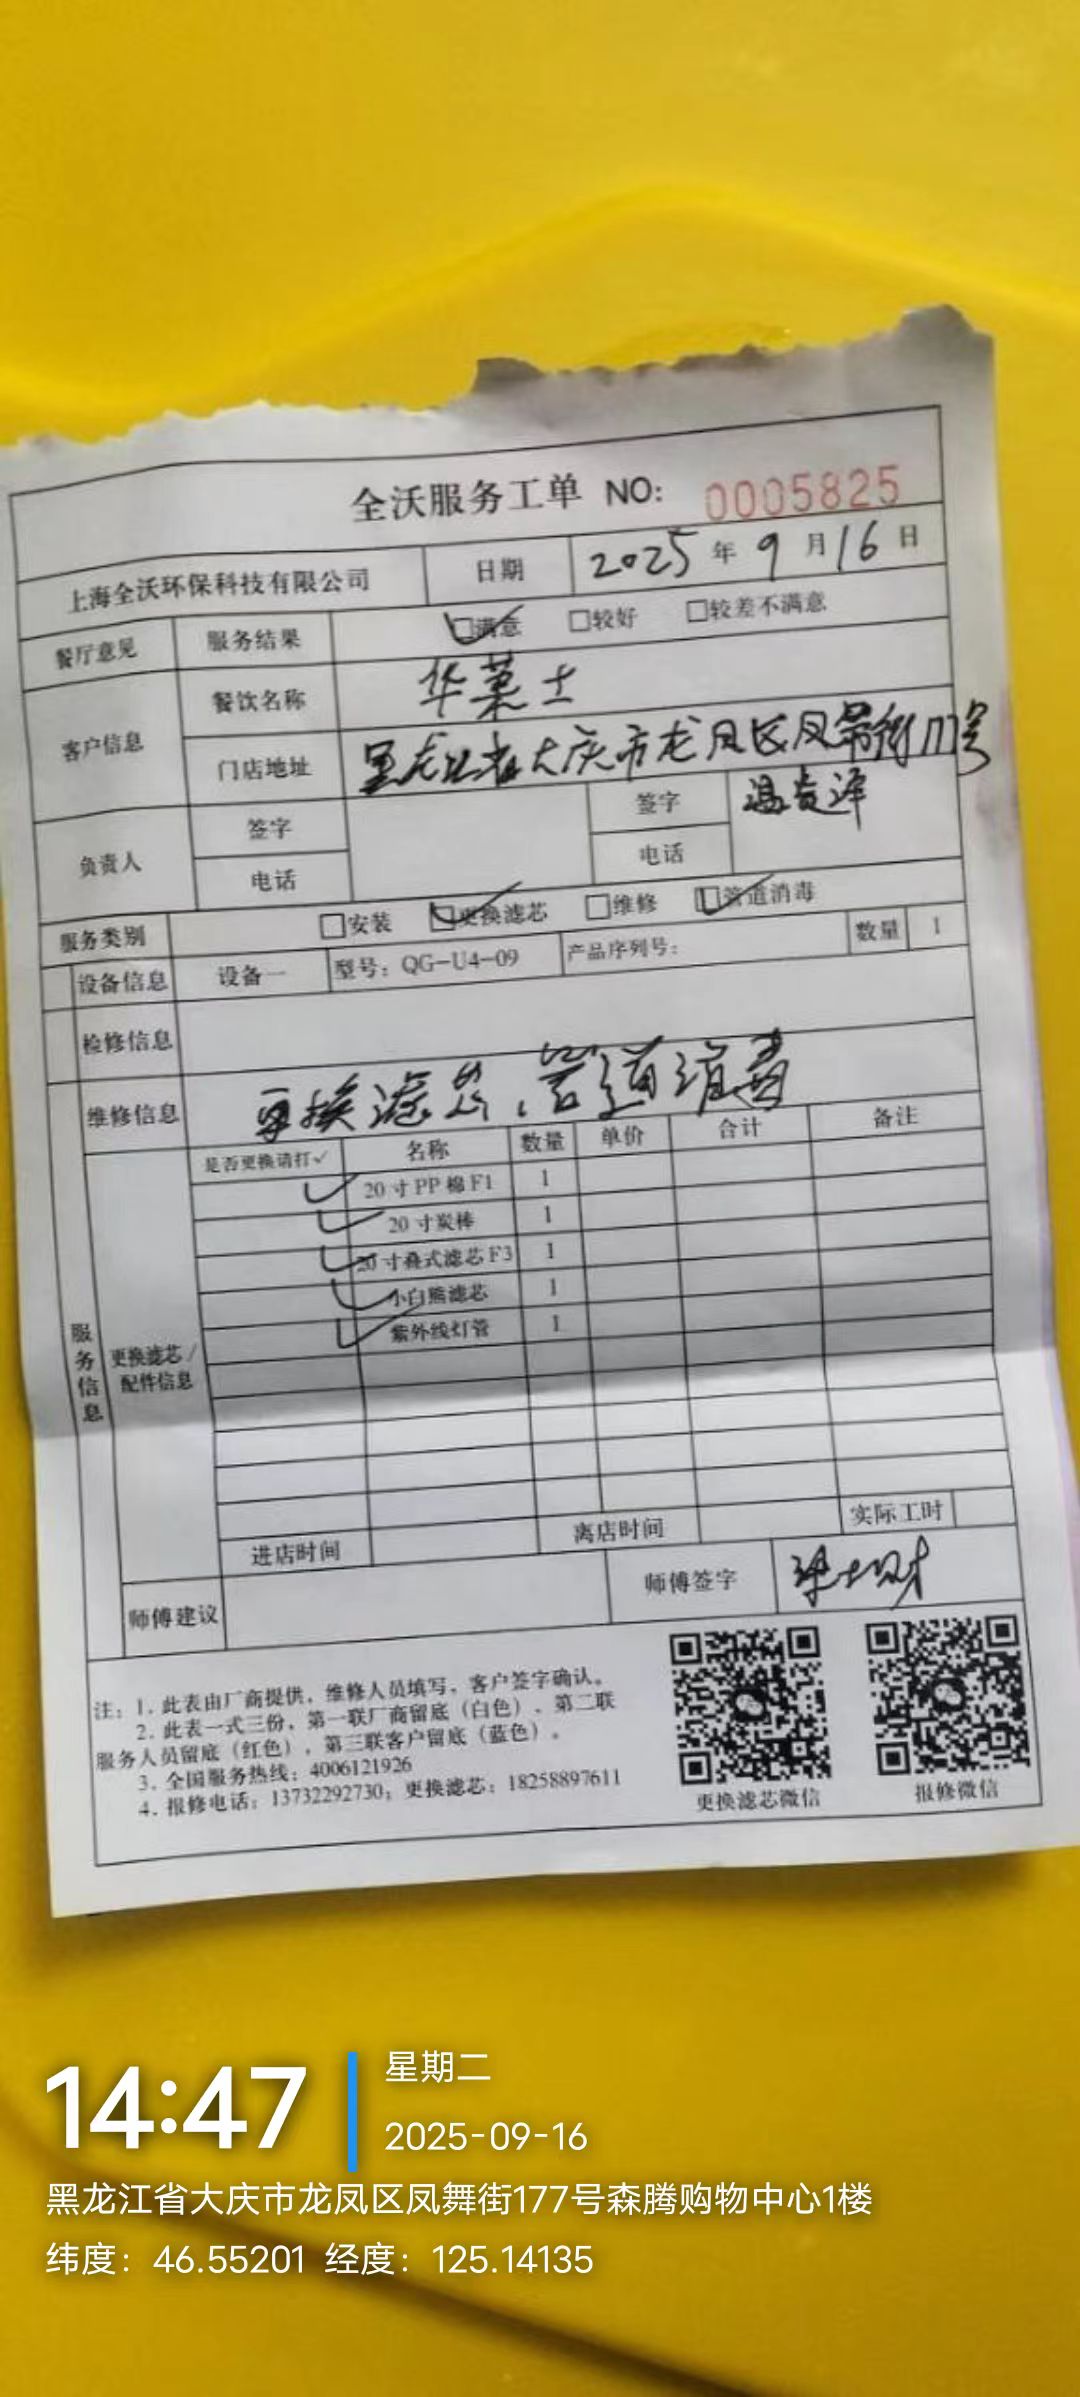 全沃服务工单 NO: 0005825
上海全沃环保科技有限公司 日期 2025年9月16日
餐厅意见 服务结果 □满意 □较好 □较差不满意
客户信息 餐饮名称 华莱士
门店地址 黑龙江省大庆市龙凤区凤舞街177号
负责人 签字 签字
电话 电话
服务类别 □安装 □更换滤芯 □维修 □管道消毒
设备信息 设备一 型号:QG-U4-09 产品序列号: 数量 1
检修信息
维修信息 更换滤芯、管道消毒
是否更换请打✓ 名称 数量 单价 合计 备注
✓ 20寸PP棉F1 1
✓ 20寸炭棒 1
✓ 20寸叠式滤芯F3 1
✓ 小白熊滤芯 1
✓ 紫外线灯管 1
服务信息
更换滤芯/
配件信息
进店时间 离店时间 实际工时
师傅建议 师傅签字
注:1. 此表由厂商提供,维修人员填写,客户签字确认。
2. 此表一式三份,第一联厂商留底(白色),第二联
服务人员留底(红色),第三联客户留底(蓝色)。
3. 全国服务热线:4006121926
4. 报修电话:13732292730;更换滤芯:18258897611
更换滤芯微信 报修微信
14:47 星期二
2025-09-16
黑龙江省大庆市龙凤区凤舞街177号森腾购物中心1楼
纬度:46.55201 经度:125.14135